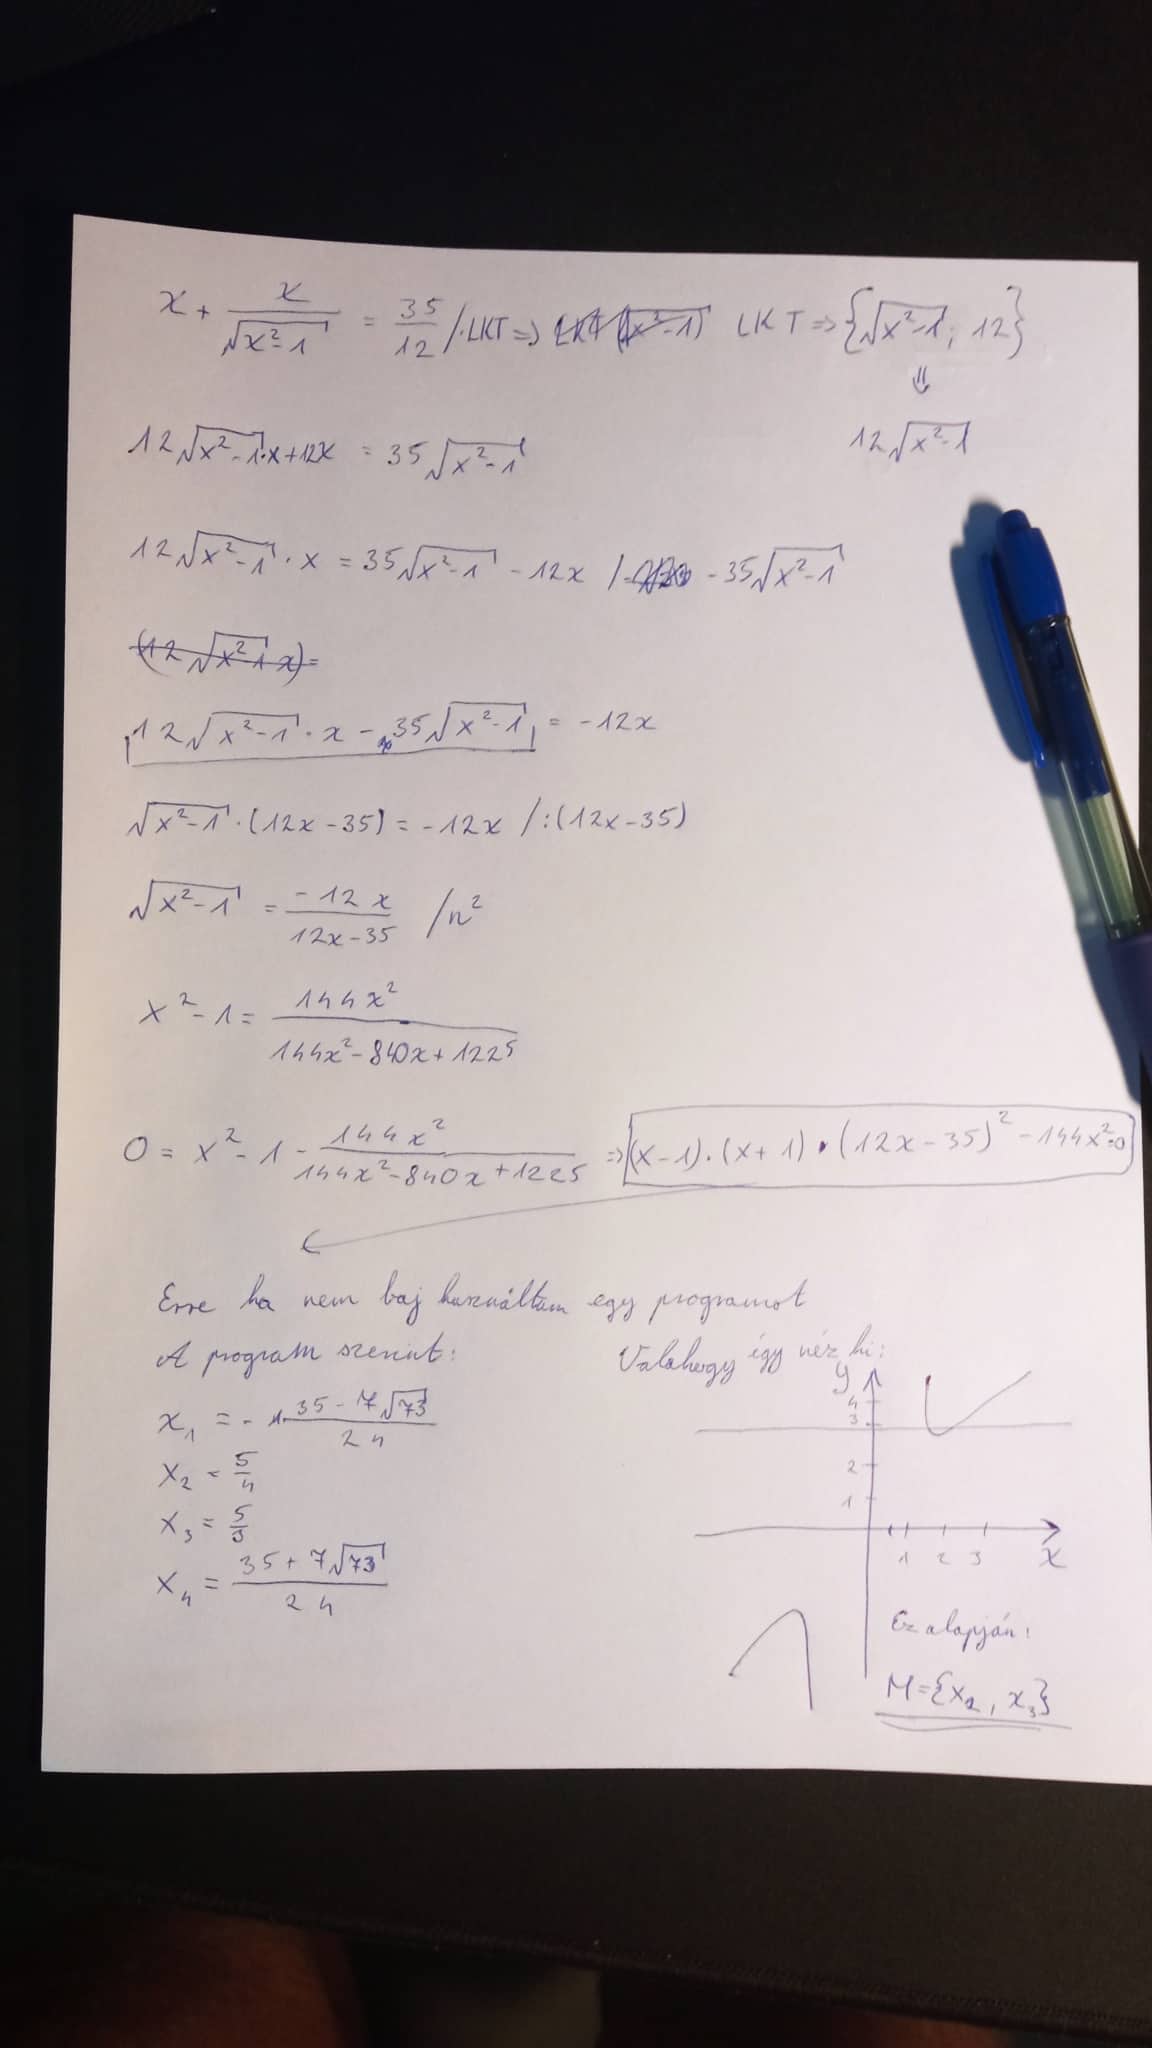 x + x/√(x²-1) = 35/12 /·LKT => LKT (√(x²-1)) LKT => {√(x²-1); 12}
⇓
12√(x²-1)·x+12x = 35√(x²-1)
12√(x²-1)
12√(x²-1)·x = 35√(x²-1) - 12x / - 35√(x²-1)
(12√(x²-1)·x)=
12√(x²-1)·x - 35√(x²-1) = -12x
√(x²-1)·(12x-35) = -12x /:(12x-35)
√(x²-1) = -12x/(12x-35) /n²
x²-1 = 144x²/(144x²-840x+1225)
0 = x²-1 - 144x²/(144x²-840x+1225) => (x-1)·(x+1)·(12x-35)²-144x²=0
Erre ha nem baj használtam egy programot
A program szerint:
x₁ = - (35-7√73)/24
x₂ = 5/4
x₃ = 5/3
x₄ = (35+7√73)/24
Valahogy így néz ki:
y
4
3
2
1
1 2 3
x
Ez alapján:
M={x₂, x₃}